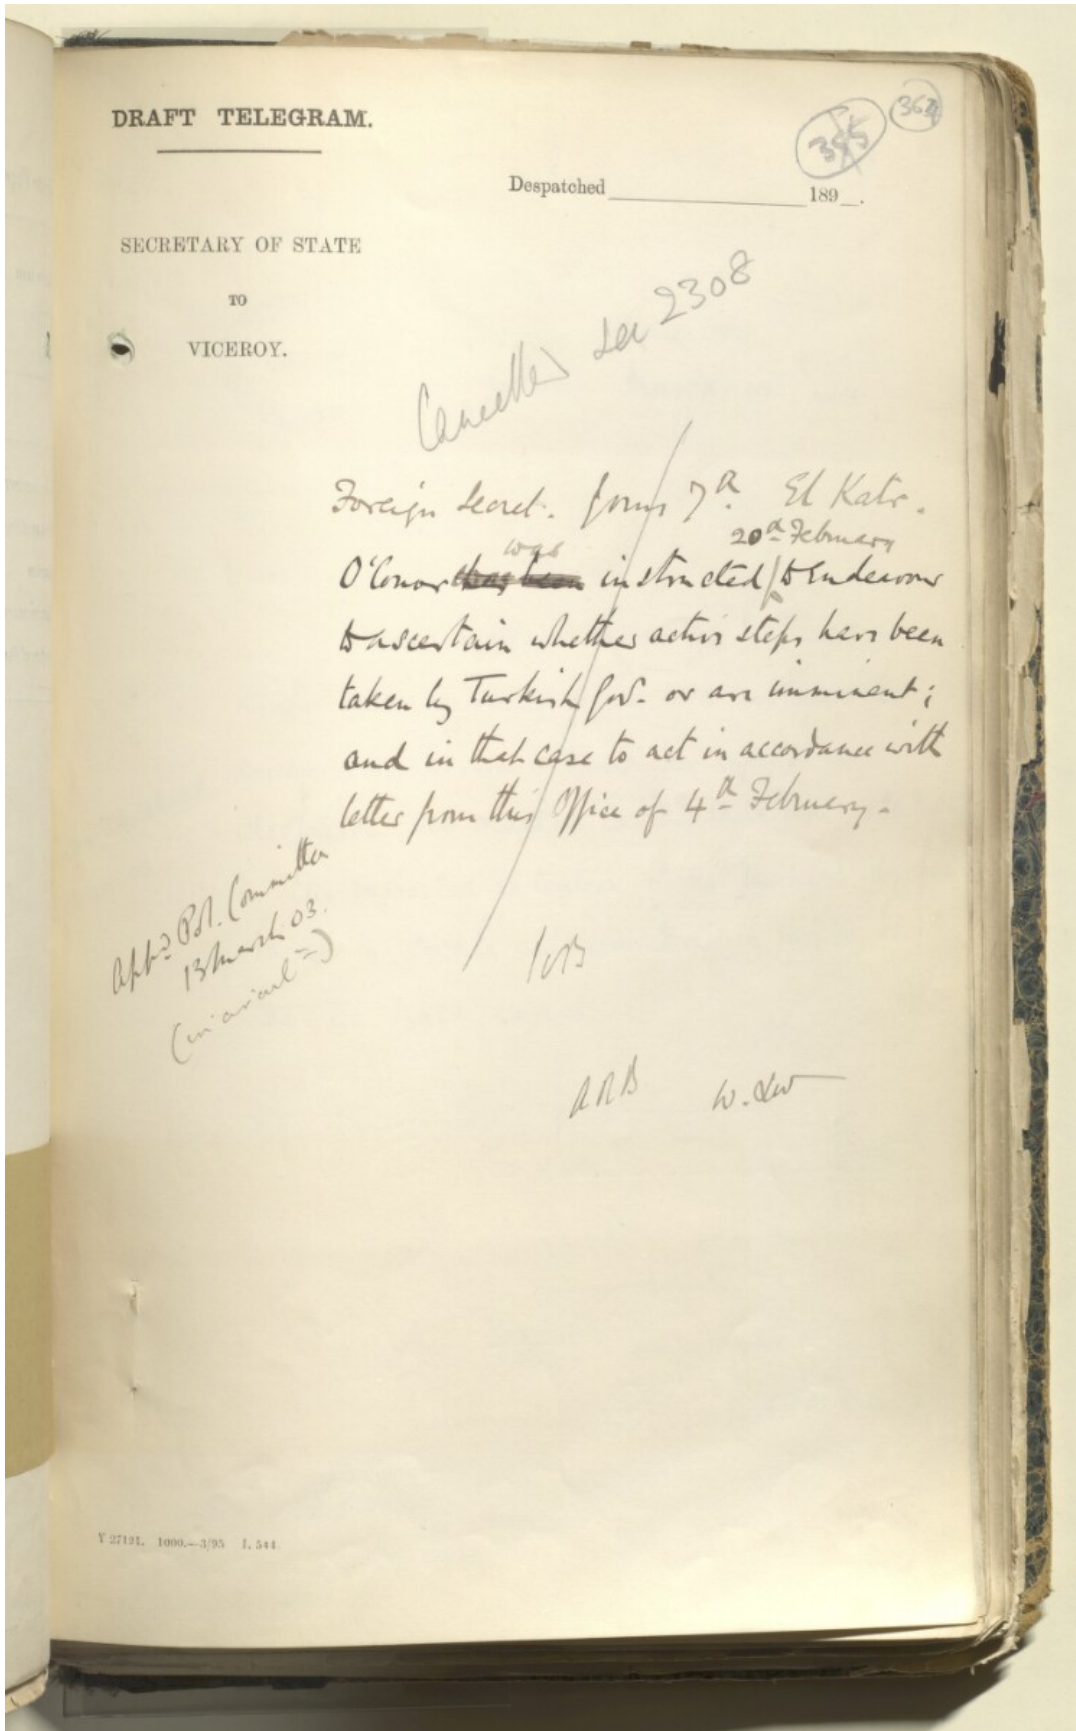 364
355
DRAFT TELEGRAM.
Despatched 189 .
SECRETARY OF STATE
TO
VICEROY.
Cancelled See 2308
Foreign Secret. Yours 7th. El Katr.
was 20th February
O'Conor has been instructed to endeavour
to ascertain whether active steps have been
taken by Turkish Govt. or are imminent;
and in that case to act in accordance with
letter from this Office of 4th February.
Appd Pol. Committee
13 March 03.
ARB W. LW
Y 27121. 1000.—3/95 I. 544.